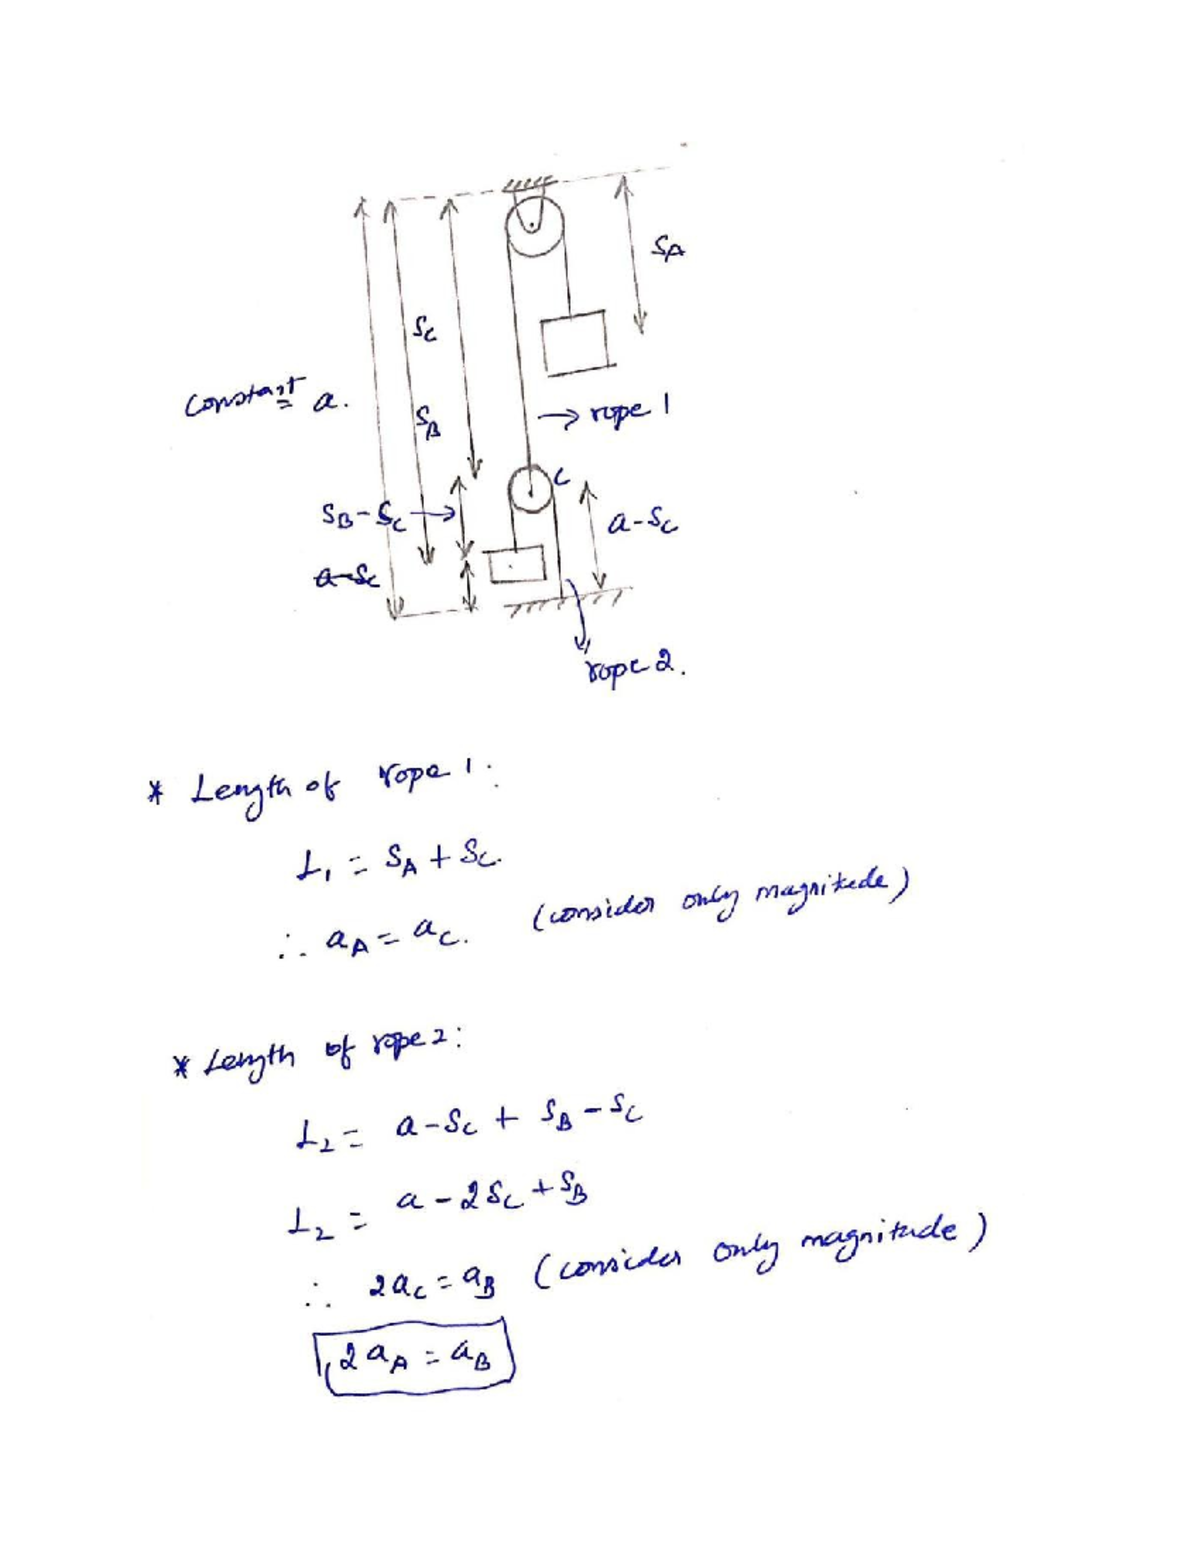 SA
Sc
constant = a.
SB
→ rope 1
C
SB-Sc
a-Sc
a-Sc
rope 2.
* Length of rope 1:
L1 = SA + Sc.
∴ aA = ac. (consider only magnitude)
* Length of rope 2:
L2 = a-Sc + SB-Sc
L2 = a-2Sc+SB
∴ 2ac = aB (consider only magnitude)
2aA = aB